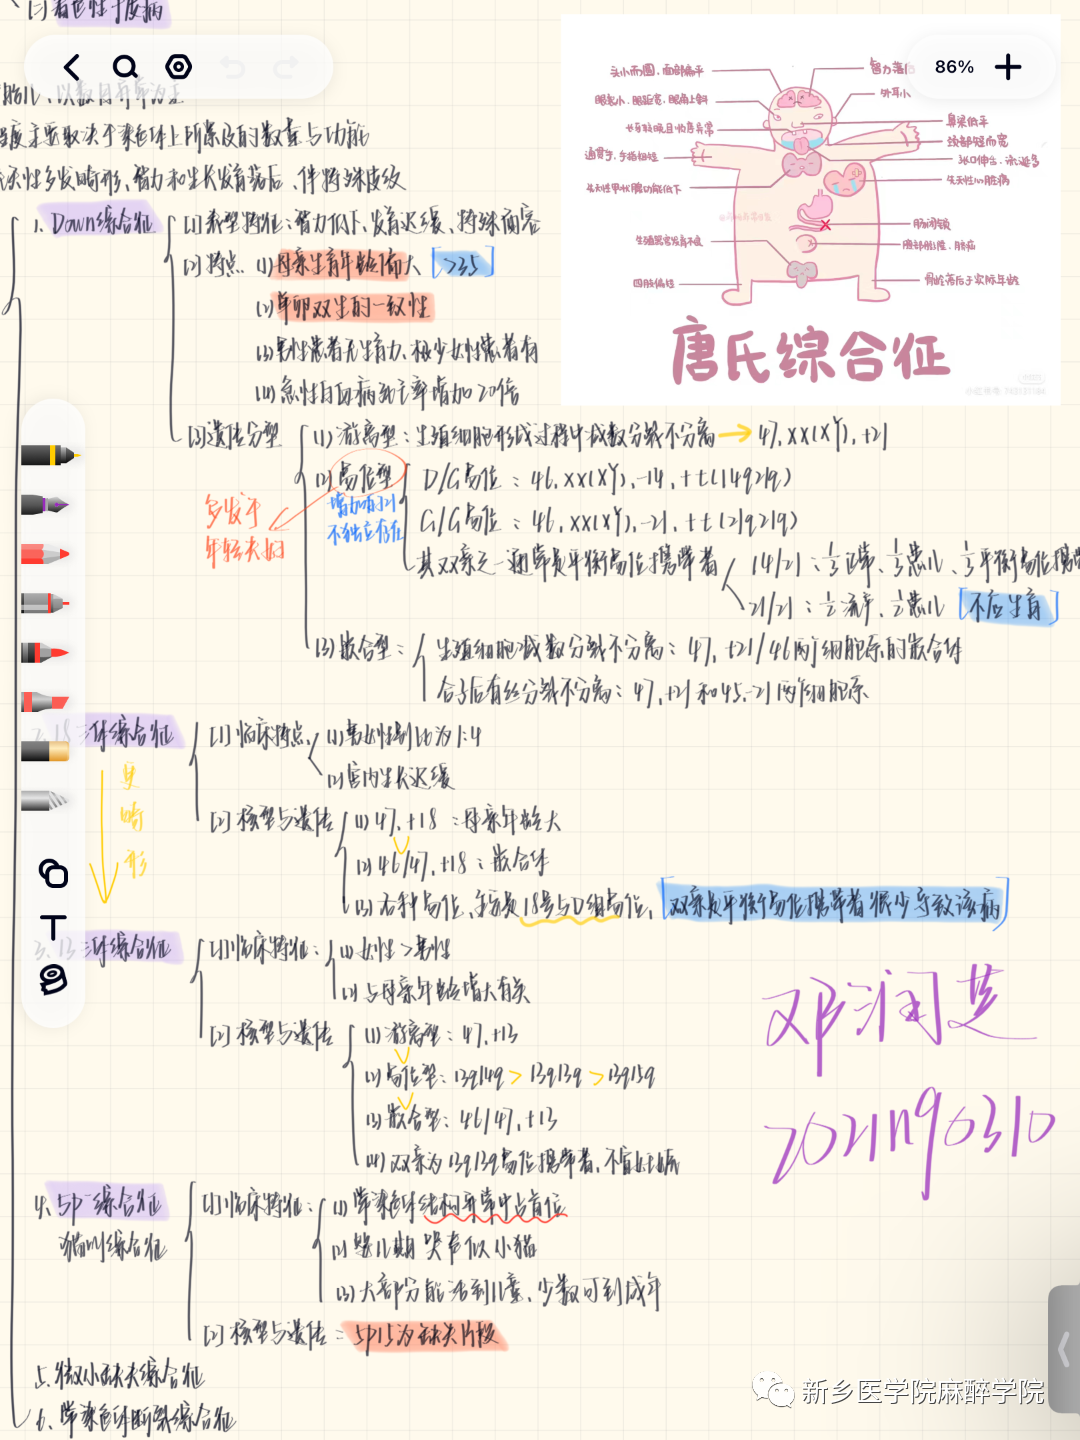 86%
头小而圆，面部扁平
智力落后
眼裂小，眼距宽，眼角上斜
外耳小
鼻梁低平
出牙较晚且常有异常
颈部短而宽
通贯手，手指粗短
张口伸舌，流涎多
先天性甲状腺功能低下
先天性心脏病
肠闭锁
生殖器官发育不良
腹部膨隆，脐疝
四肢偏短
骨龄落后于实际年龄
唐氏综合征
度主要取决于染色体上所累及的数量与功能
先天性多发畸形、智力和生长发育落后、伴特殊皮纹
1. Down综合征
[1]表型特征：智力低下、发育迟缓、特殊面容
[2]特点 (1)母亲生育年龄偏大 [>35]
(2)单卵双生的一致性
(3)男性患者无生育力、极少女性患者有
(4)急性白血病死亡率增加20倍
[3]遗传分型
(1)游离型：生殖细胞形成过程中减数分裂不分离→47,XX(XY),+21
(2)易位型
增加的21
不独立存在
多发于
年轻夫妇
D/G易位：46,XX(XY),-14,+t(14q21q)
G/G易位：46,XX(XY),-21,+t(21q21q)
其双亲之一通常是平衡易位携带者
14/21：1/3正常、1/3患儿、1/3平衡易位携带
21/21：1/2流产、1/2患儿 [不应生育]
(3)嵌合型：
生殖细胞减数分裂不分离：47,+21/46两个细胞系的嵌合体
合子后有丝分裂不分离：47,+21和45,-21两个细胞系
2. 18三体综合征
[1]临床特点
(1)男女性别比为1:4
(2)宫内生长迟缓
[2]核型与遗传
(1)47,+18：母亲年龄大
(2)46/47,+18：嵌合体
(3)各种易位、主要是18号与D组易位、[双亲是平衡易位携带者很少导致该病]
更
畸
形
3. 13三体综合征
[1]临床特征：(1)女性>男性
(2)与母亲年龄增大有关
[2]核型与遗传
(1)游离型：47,+13
(2)易位型：13q14q > 13q13q > 13q15q
(3)嵌合型：46/47,+13
(4)双亲为13q13q易位携带者，不宜妊娠
邓润芝
4. 5p-综合征
猫叫综合征
[1]临床特征：
(1)常染色体结构异常中占首位
(2)婴儿期 哭声似小猫
(3)大部分能活到儿童、少数可到成年
[2]核型与遗传：5p15为缺失片段
5. 微小缺失综合征
6. 常染色体断裂综合征
新乡医学院麻醉学院